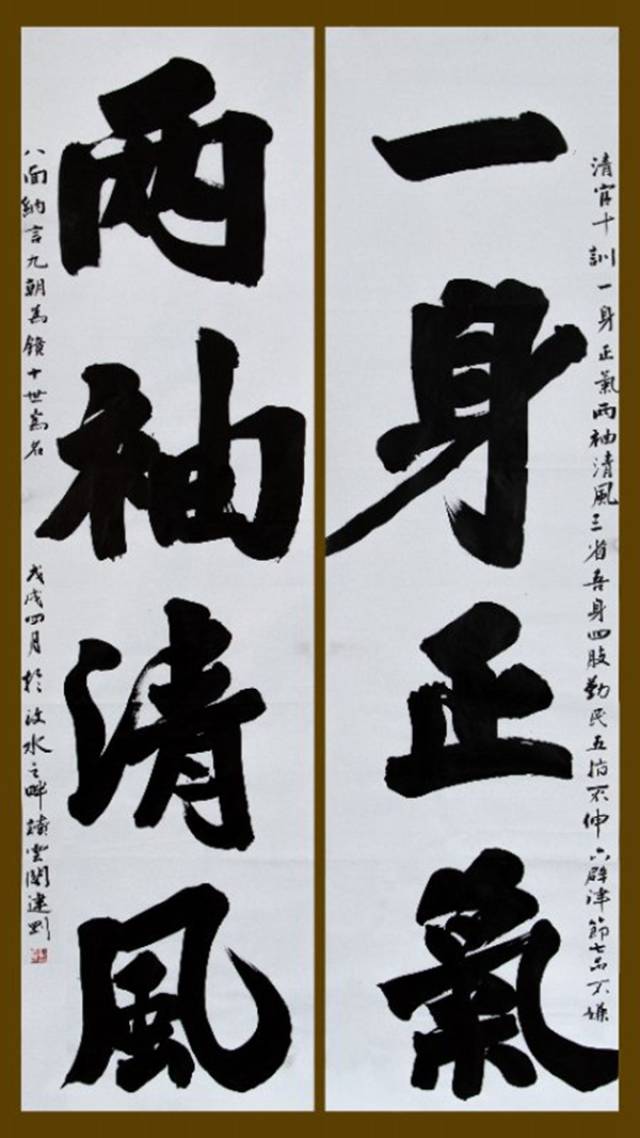 一身正氣
兩袖清風
清官十訓一身正氣兩袖清風三省吾身四肢勤民五指不伸六辟津節七品不嫌
八面納言九朝為鏡十世寫名
戊戌四月於汶水之畔 雲閣建